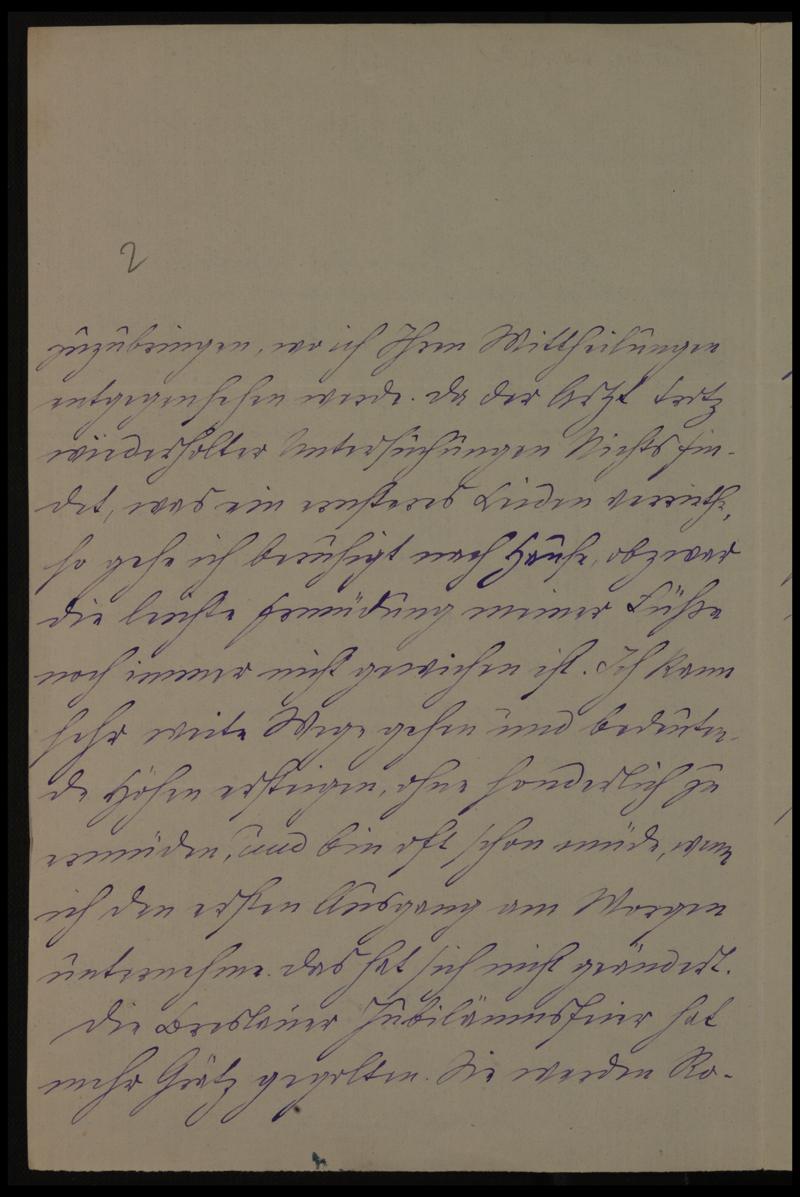 2
zuzubringen, wo ich Ihren Mittheilungen
entgegensehen werde. Da der Arzt trotz
wiederholter Untersuchungen Nichts fin-
det, was ein ernsteres Leiden verriethe,
so gehe ich beruhigt nach Hause, obzwar
die leichte Ermüdung meiner Füße
noch immer nicht gewichen ist. Ich kann
sehr weite Wege gehen und bedeuten-
de Höhen ersteigen, ohne sonderlich zu
ermüden, und bin oft schon müde, wenn
ich den ersten Ausgang am Morgen
unternehme. Das hat sich nicht geändert.
Die Breslauer Jubiläumsfeier hat
mehr Grätz gegolten. Sie werden Ro-